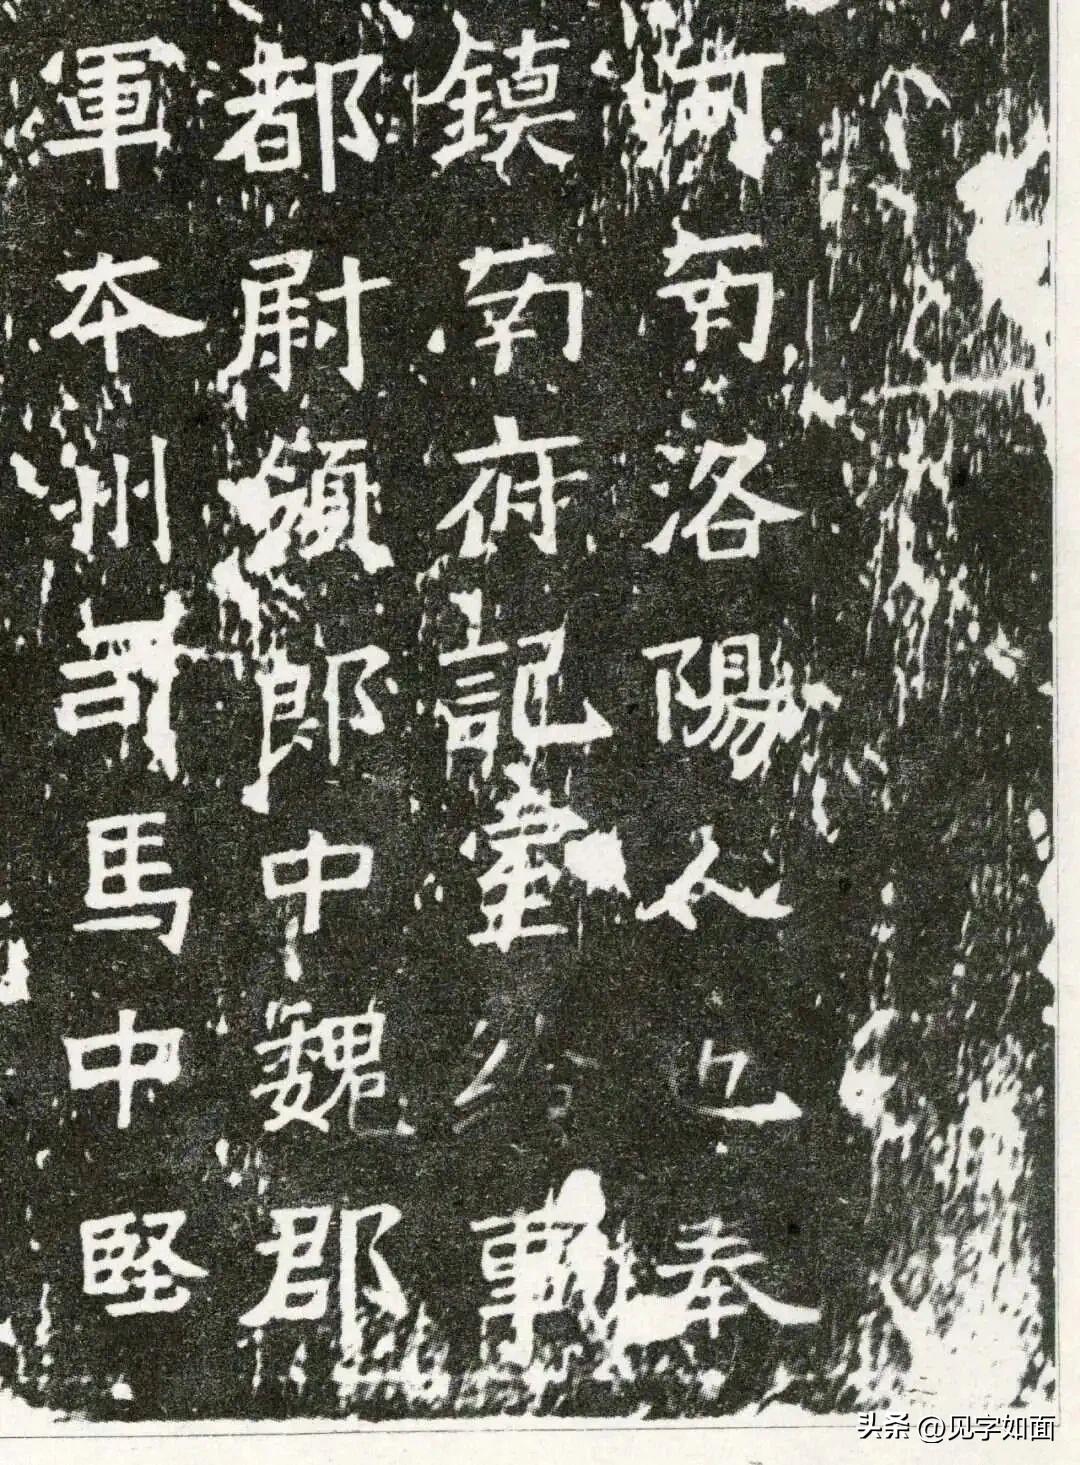 河南洛陽人也奉
鎮南府記室給事
都尉領郎中魏郡
軍本州司馬中堅
头条 @见字如面